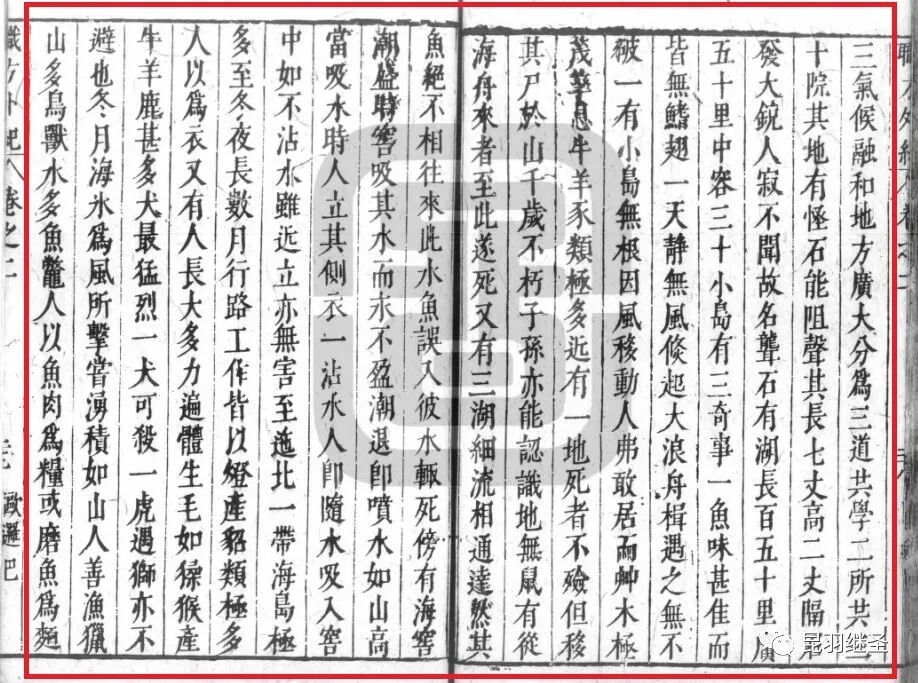 職方外紀 卷之二
三氣候融和地方廣大分爲三道共學二所共三
十院其地有怪石能阻聲其長七丈高二丈隔
發大銃人寂不聞故名聾石有湖長百五十里廣
五十里中容三十小島有三奇事一魚味甚佳而
皆無鰭翅一天静無風倐起大浪舟楫遇之無不
破一有小島無根因風移動人弗敢居而艸木極
茂華息牛羊豕類極多近有一地死者不殮但移
其尸於山千歲不朽子孫亦能認識地無鼠有從
海舟來者至此遂死又有三湖細流相通達然其
魚絕不相往來此水魚誤入彼水輒死傍有海窖
潮盛時窖吸其水而永不盈潮退卽噴水如山高
當吸水時人立其側衣一沾水人卽隨水吸入窖
中如不沾水雖近立亦無害至迤北一帶海島極
多至冬夜長數月行路工作皆以燈產貂類極多
人以爲衣又有人長大多力遍體生毛如猱猴產
牛羊鹿甚多犬最猛烈一犬可殺一虎遇獅亦不
避也冬月海氷爲風所擊嘗湧積如山人善漁獵
山多鳥獸水多魚鱉人以魚肉爲糧或磨魚爲麵
職方外紀 卷之二 歐邏巴
昆羽继圣